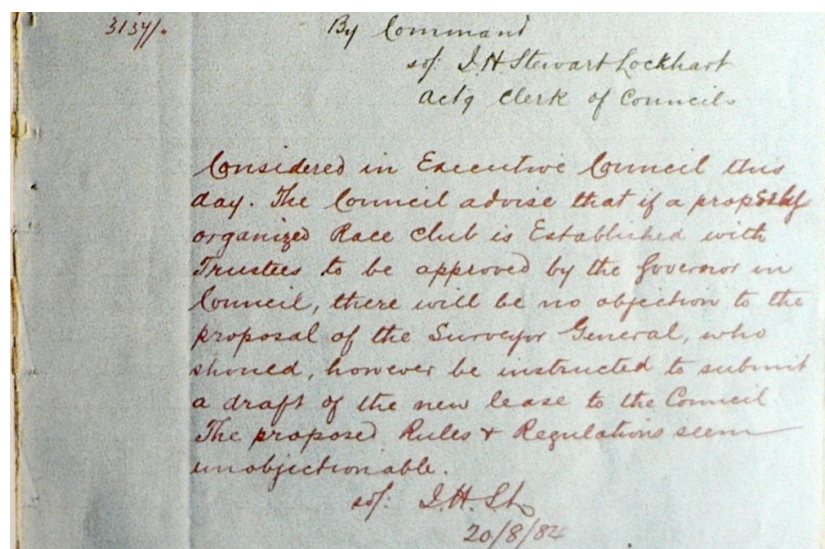 3137/.
By Command
sd/: J. H. Stewart Lockhart
Actg Clerk of Councils
Considered in Executive Council this
day. The Council advise that if a properly
organized Race Club is Established with
Trustees to be approved by the Governor in
Council, there will be no objection to the
proposal of the Surveyor General, who
should, however be instructed to submit
a draft of the new lease to the Council
The proposed Rules & Regulations seem
unobjectionable.
sd/: J. H. St
20/8/84